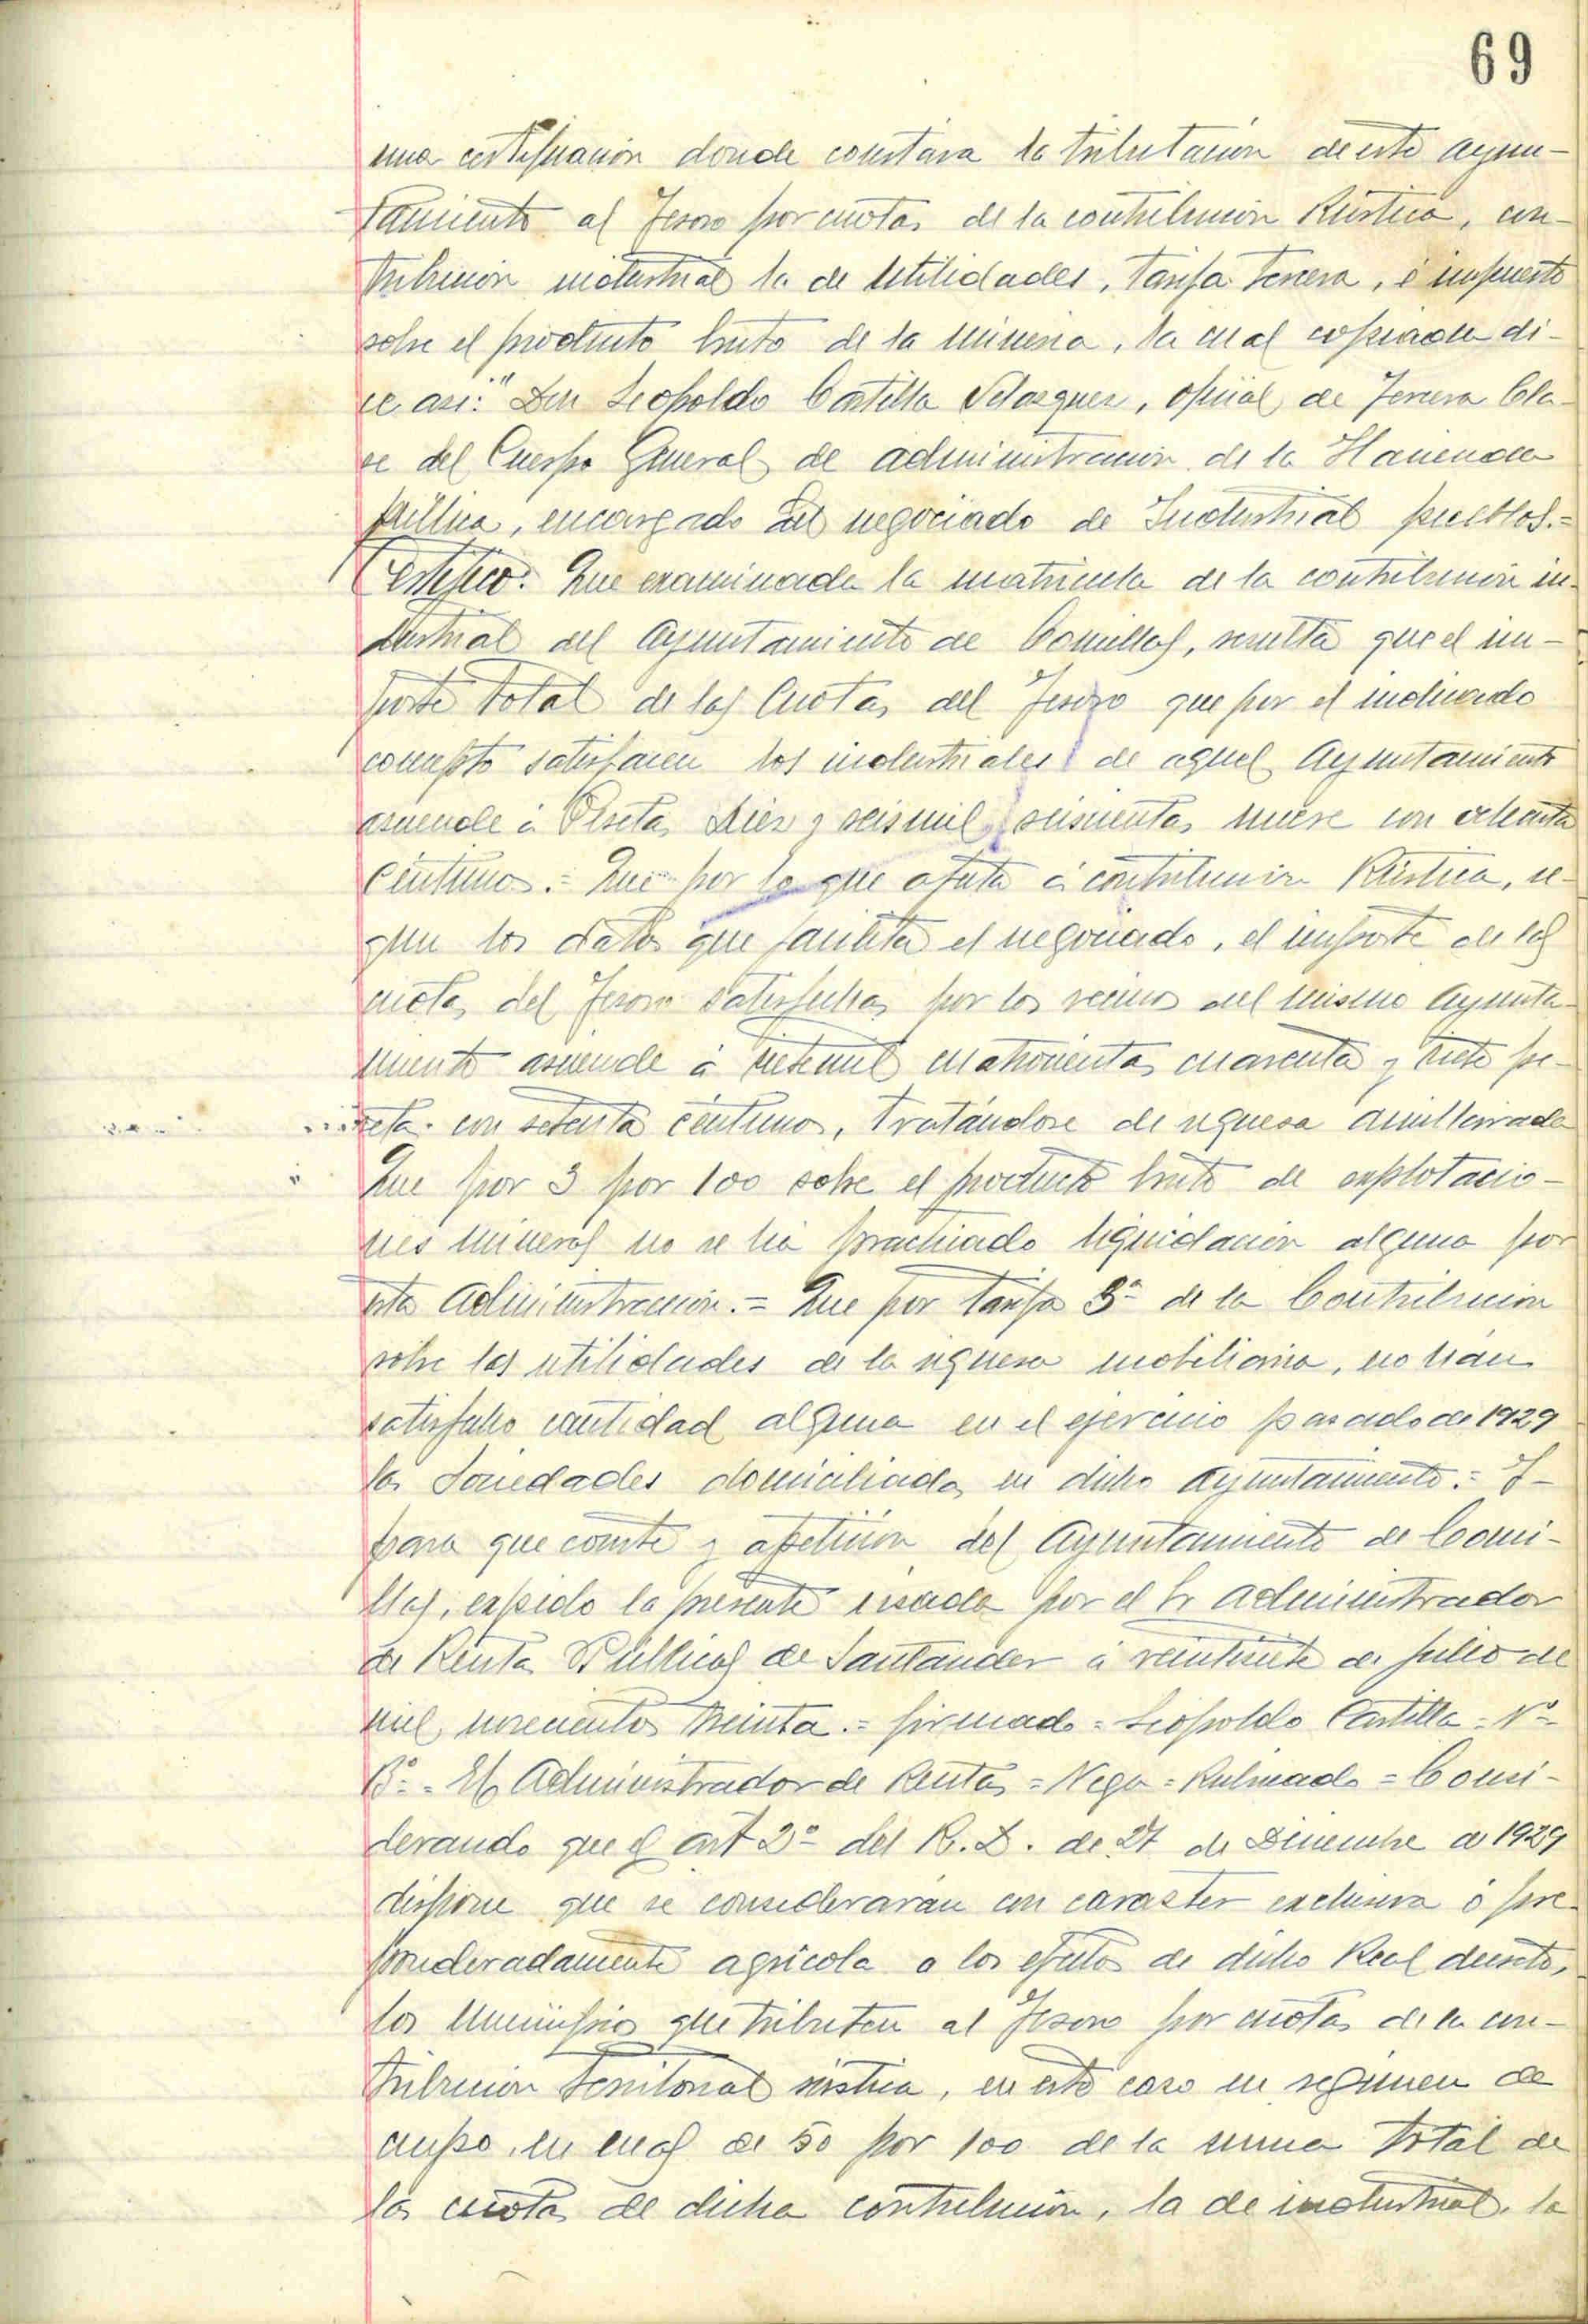 69
una certificación donde constára la tributación de este ayun-
tamiento al Tesoro por cuotas de la contribución Rústica, con-
tribución industrial la de Utilidades, Tarifa Tercera, é impuesto
sobre el producto bruto de la mineria, la cual copiada di-
ce asi: "Don Leopoldo Castilla Velazquez, oficial de Tercera Cla-
se del Cuerpo General de administración de la Hacienda
pública, encargado del negociado de Industrial pueblos.=
Certifico: Que examinada la matricula de la contribución in-
dustrial del Ayuntamiento de Comillas, resulta que el im-
porte total de las Cuotas del Tesoro que por el indicado
concepto satisfacen los industriales de aquel Ayuntamiento
asciende á Pesetas Diez y seis mil seiscientas nueve con ochenta
Céntimos.= Que por lo que afecta á contribución Rústica, se-
gun los datos que facilita el negociado, el importe de las
cuotas del Tesoro satisfechas por los vecinos del mismo Ayunta-
miento asciende á sietemil cuatrocientas cuarenta y siete pe-
setas con setenta céntimos, tratándose de riqueza amillarada
Que por 3 por 100 sobre el producto bruto de explotacio-
nes mineras no se há practicado liquidación alguna por
esta Administracción.= Que por tarifa 3ª de la Contribución
sobre las utilidades de la riqueza mobiliaria, no hán
satisfecho cantidad alguna en el ejercicio pasado de 1929
las Sociedades domiciliadas en dicho Ayuntamiento.= Y-
para que conste y a petición del Ayuntamiento de Comi-
llas, expido la presente visada por el Sr Administrador
de Rentas Públicas de Santander á veintisiete de Julio de
mil novecientos treinta.= firmado = Leopoldo Castilla = Vº-
Bº = El Administrador de Rentas = Vega = Rubricado = Consi-
derando que el art 2º del R.D. de 27 de Diciembre de 1929
dispone que se considerarán con caracter exclusiva ó pre-
ponderadamente agrícola a los efectos de dicho Real decreto,
los Municipios que tributen al Tesoro por cuotas de la con-
tribución Territorial rústica, en este caso en régimen de
cupo, en cual de 50 por 100 de la suma total de
las cuotas de dicha contribución, la de industrial, la